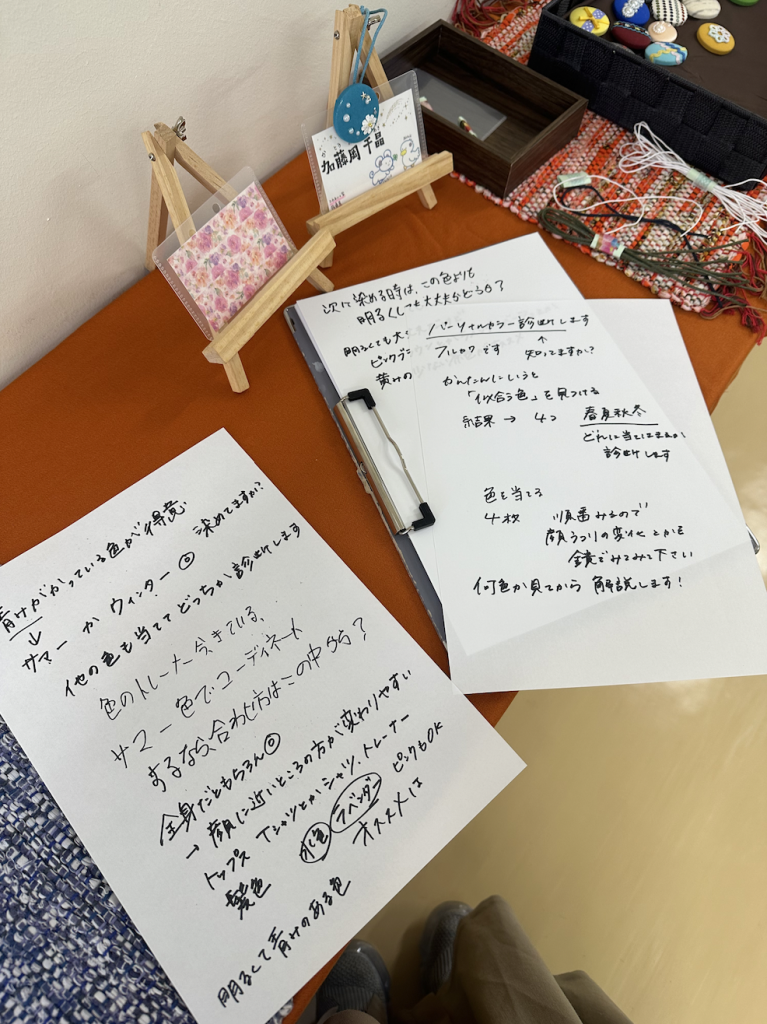 加藤岡 千晶
次に染める時は、この色よりも
明るくしても大丈夫などうか?
明るくても大
ピンクブ
黄みの
パーソナルカラー診断します
フルカワです ↑ 知ってますか?
かんたんにいうと
「似合う色」を見つける
結果 → 4つ 春夏秋冬
どれに当てはまるか
診断します
色を当てる
4枚 順番みるので
顔うつりの変化とかを
鏡でみてみて下さい
何色か見てから 解説します!
青みがかっている色が得意
↓
サマー か ウィンター ◎ 染めてますか?
他の色も当てて どっちか診断します
色のトレーナー 今きている、
サマー色でコーディネート
するなら、合わせ方はこの中から?
全身だともちろん◎
→ 顔に近いところの方が変わりやすい
トップス Tシャツとかシャツ、トレーナー
髪色 水色 ラベンダー ピンクもOK
オススメは
明るくて青みのある色